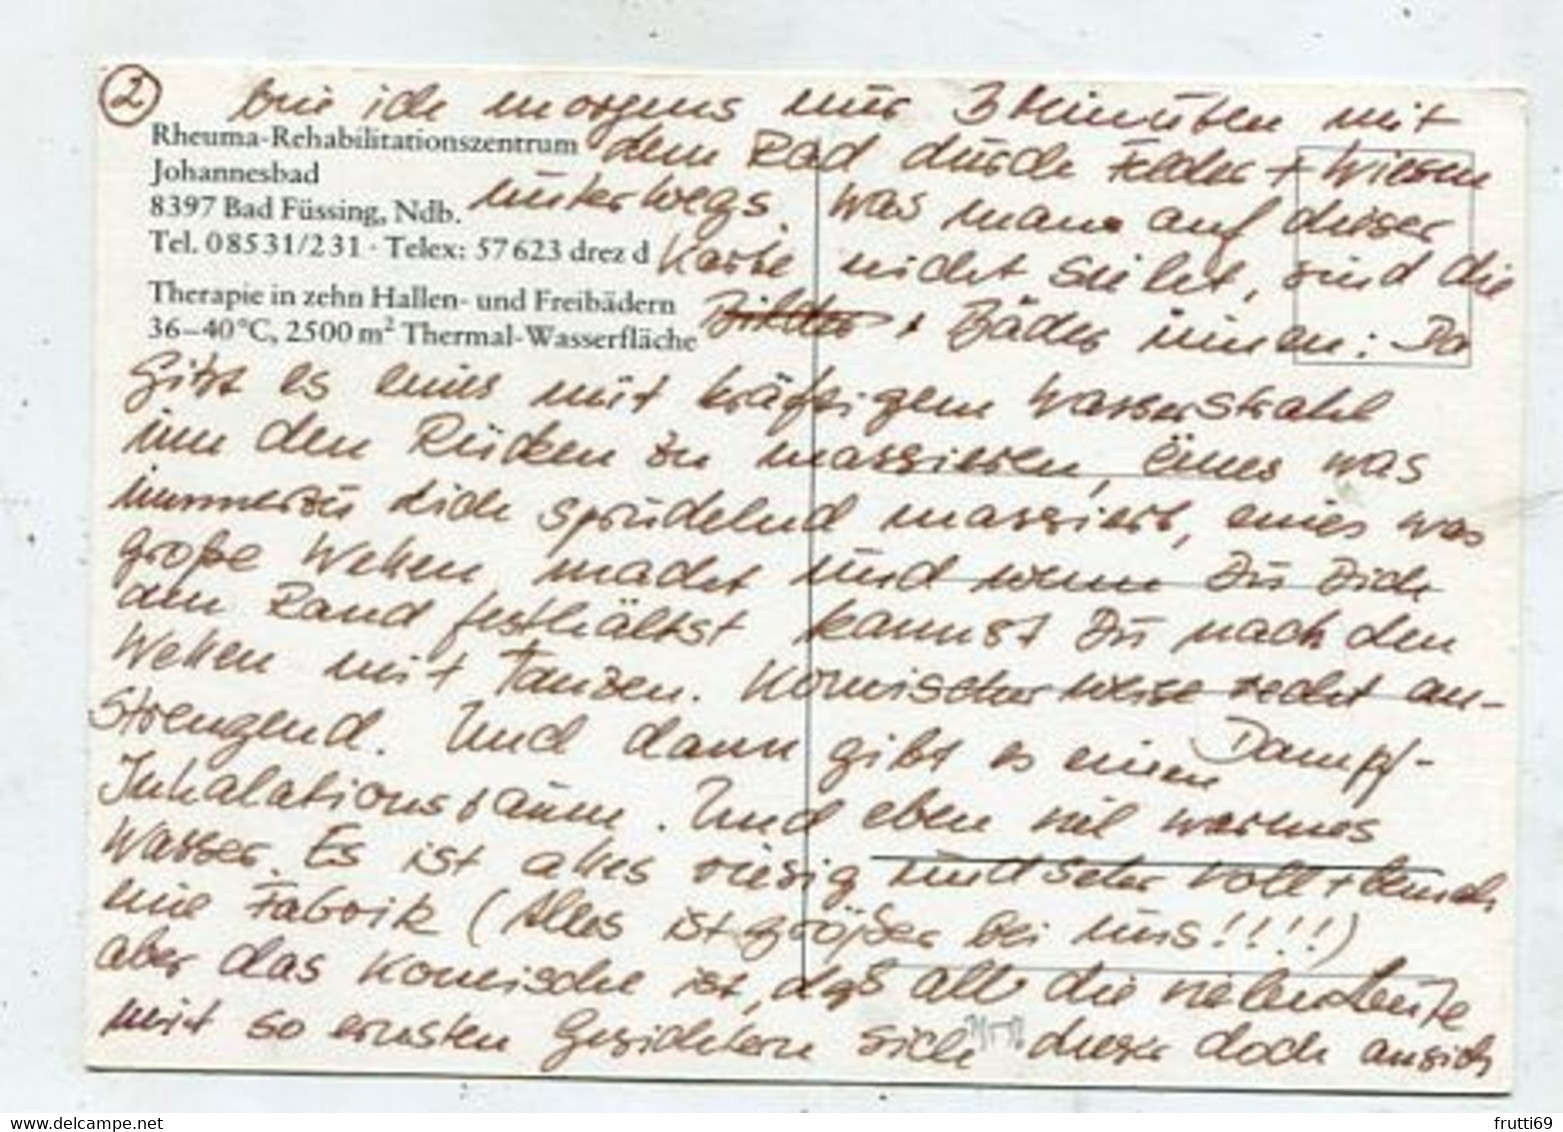 2 bin ich morgens nur 3 Minuten mit
Rheuma-Rehabilitationszentrum dem Rad durch Felder + Wiesen
Johannesbad
8397 Bad Füssing, Ndb. unterwegs. Was man auf dieser
Tel. 08531/231 · Telex: 57623 drez d Karte nicht sieht, sind die
Therapie in zehn Hallen- und Freibädern
36–40°C, 2500 m² Thermal-Wasserfläche Bäder innen: Da
gibt es eines mit kräftigem Wasserstrahl
um den Rücken zu massieren, eines was
immerzu dich sprudelnd massiert, eines was
große Wellen macht und wenn Du Dich
am Rand festhältst kannst Du nach den
Wellen mit tanzen. Komischerweise recht an-
strengend. Und dann gibt es einen Dampf-
Inhalationsraum. Und eben viel warmes
Wasser. Es ist alles riesig und sehr voll +
eine Fabrik (Alles ist größer bei uns!!!!)
aber das Komische ist, daß all die vielen Leute
mit so ernsten Gesichtern sich dieser doch ansich
delcampe.net
frutti69